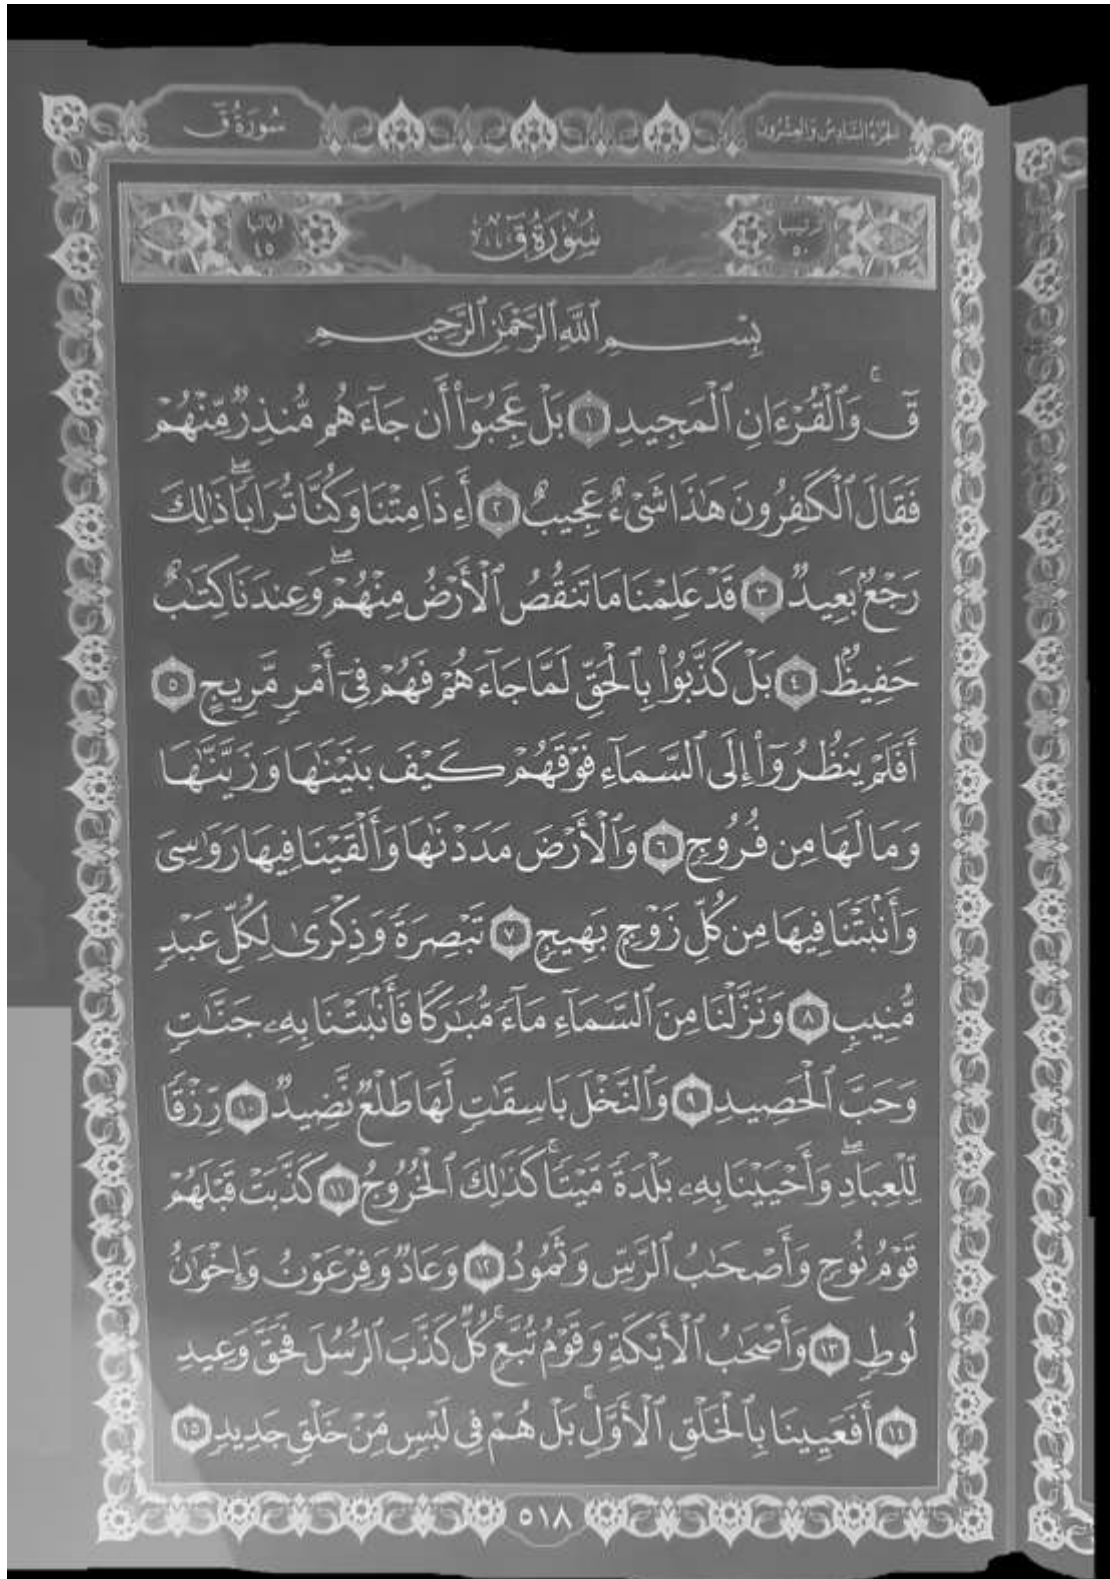 الجزء السادس والعشرون
سورة ق
ترتيبها ٥٠
سُورَةُ قٓ
آياتها ٤٥
بِسْمِ ٱللَّهِ ٱلرَّحْمَٰنِ ٱلرَّحِيمِ
قٓۚ وَٱلْقُرْءَانِ ٱلْمَجِيدِ ١ بَلْ عَجِبُوٓا۟ أَن جَآءَهُم مُّنذِرٌ مِّنْهُمْ
فَقَالَ ٱلْكَٰفِرُونَ هَٰذَا شَىْءٌ عَجِيبٌ ٢ أَءِذَا مِتْنَا وَكُنَّا تُرَابًاۖ ذَٰلِكَ
رَجْعٌۢ بَعِيدٌ ٣ قَدْ عَلِمْنَا مَا تَنقُصُ ٱلْأَرْضُ مِنْهُمْۖ وَعِندَنَا كِتَٰبٌ
حَفِيظٌۢ ٤ بَلْ كَذَّبُوا۟ بِٱلْحَقِّ لَمَّا جَآءَهُمْ فَهُمْ فِىٓ أَمْرٍ مَّرِيجٍ ٥
أَفَلَمْ يَنظُرُوٓا۟ إِلَى ٱلسَّمَآءِ فَوْقَهُمْ كَيْفَ بَنَيْنَٰهَا وَزَيَّنَّٰهَا
وَمَا لَهَا مِن فُرُوجٍ ٦ وَٱلْأَرْضَ مَدَدْنَٰهَا وَأَلْقَيْنَا فِيهَا رَوَٰسِىَ
وَأَنۢبَتْنَا فِيهَا مِن كُلِّ زَوْجٍۭ بَهِيجٍ ٧ تَبْصِرَةً وَذِكْرَىٰ لِكُلِّ عَبْدٍ
مُّنِيبٍ ٨ وَنَزَّلْنَا مِنَ ٱلسَّمَآءِ مَآءً مُّبَٰرَكًا فَأَنۢبَتْنَا بِهِۦ جَنَّٰتٍ
وَحَبَّ ٱلْحَصِيدِ ٩ وَٱلنَّخْلَ بَاسِقَٰتٍ لَّهَا طَلْعٌ نَّضِيدٌ ١٠ رِّزْقًا
لِّلْعِبَادِۖ وَأَحْيَيْنَا بِهِۦ بَلْدَةً مَّيْتًاۚ كَذَٰلِكَ ٱلْخُرُوجُ ١١ كَذَّبَتْ قَبْلَهُمْ
قَوْمُ نُوحٍ وَأَصْحَٰبُ ٱلرَّسِّ وَثَمُودُ ١٢ وَعَادٌ وَفِرْعَوْنُ وَإِخْوَٰنُ
لُوطٍ ١٣ وَأَصْحَٰبُ ٱلْأَيْكَةِ وَقَوْمُ تُبَّعٍۚ كُلٌّ كَذَّبَ ٱلرُّسُلَ فَحَقَّ وَعِيدِ
١٤ أَفَعَيِينَا بِٱلْخَلْقِ ٱلْأَوَّلِۚ بَلْ هُمْ فِى لَبْسٍ مِّنْ خَلْقٍ جَدِيدٍ ١٥
٥١٨